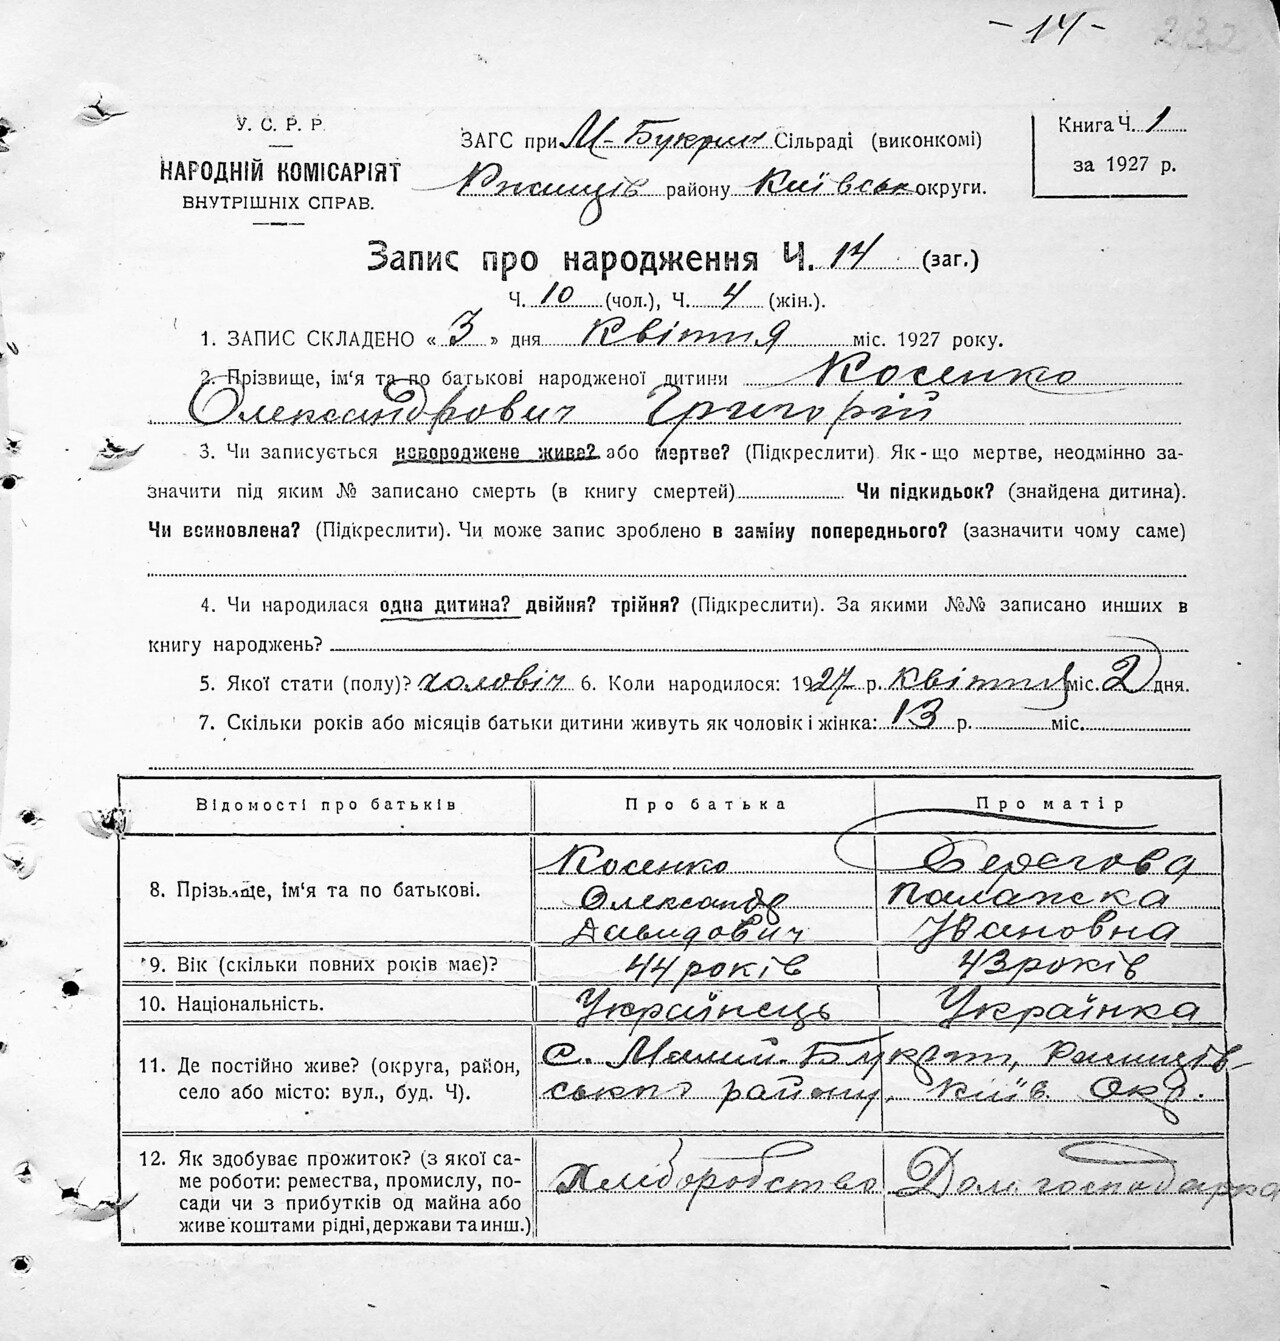 - 14 - 232
У. С. Р. Р.
НАРОДНІЙ КОМІСАРІЯТ
ВНУТРІШНІХ СПРАВ.
ЗАГС при М-Букрин Сільраді (виконкомі)
Ржищів району Київськ округи.
Книга Ч. 1
за 1927 р.
Запис про народження Ч. 14 (заг.)
Ч. 10 (чол.), Ч. 4 (жін.).
1. ЗАПИС СКЛАДЕНО « 3 » дня Квітня міс. 1927 року.
2. Прізвище, ім'я та по батькові народженої дитини Косенко
Олександрович Григорій
3. Чи записується новороджене живе? або мертве? (Підкреслити). Як-що мертве, неодмінно за-
значити під яким № записано смерть (в книгу смертей) Чи підкидьок? (знайдена дитина).
Чи всиновлена? (Підкреслити). Чи може запис зроблено в заміну попереднього? (зазначити чому саме)
4. Чи народилася одна дитина? двійня? трійня? (Підкреслити). За якими №№ записано инших в
книгу народжень?
5. Якої стати (полу)? чоловіч 6. Коли народилося: 1927 р. квітня міс. 2 дня.
7. Скільки років або місяців батьки дитини живуть як чоловік і жінка: 13 р. міс.
Відомості про батьків Про батька Про матір
8. Прізвище, ім'я та по батькові. Косенко Олександр Давидович Берегова Палажка Івановна
9. Вік (скільки повних років має)? 44 років 43 років
10. Національність. Українець Українка
11. Де постійно живе? (округа, район, с. Малий-Букрин, Ржищів-
село або місто: вул., буд. Ч). ського району, Київ. Окр.
12. Як здобуває прожиток? (з якої са-
ме роботи: ремества, промислу, по-
сади чи з прибутків од майна або
живе коштами рідні, держави та инш.) Хліборобство Дом. господарка